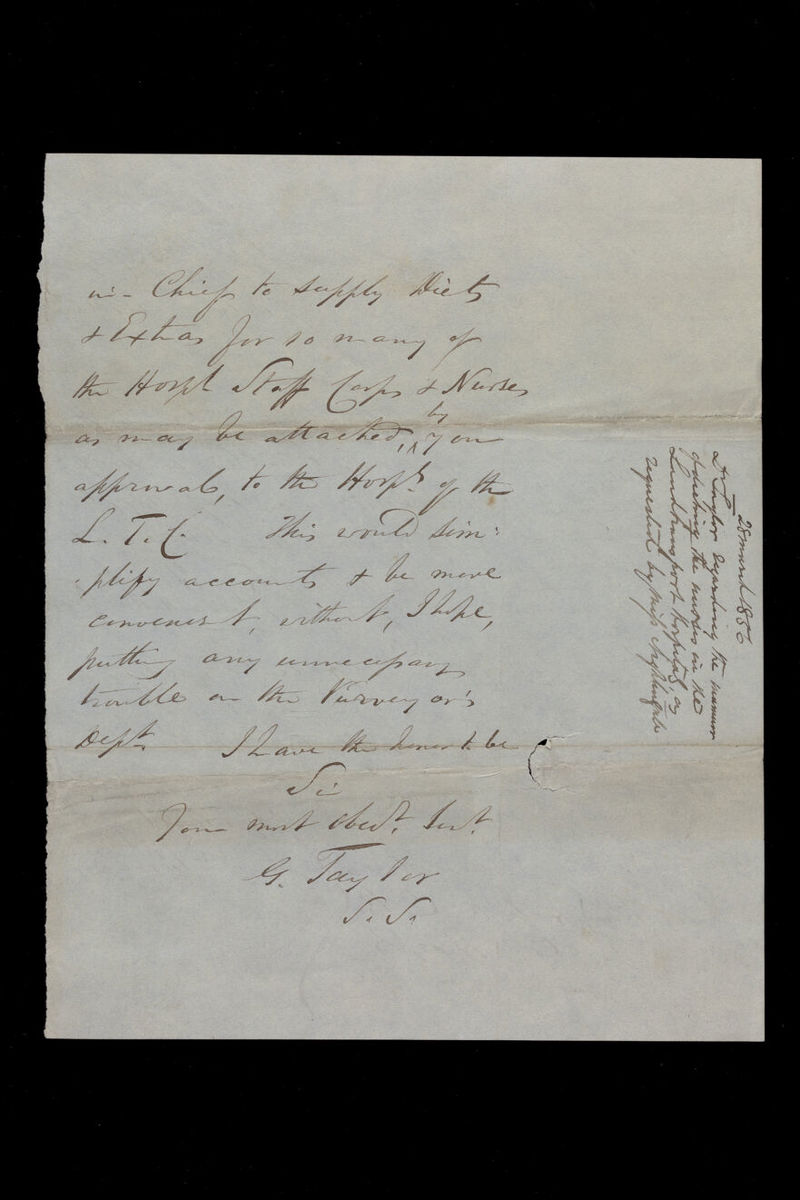 in-Chief to supply Diets
& Extras for so many of
the Hospl Staff Corps & Nurses
by
as may be attached, ^ your
approval, to the Hospls of the
L. T. C. This would sim:
:plify accounts & be more
convenient, without, I hope,
putting any unnecessary
trouble on the Purveyor's
Dept. I have the honor to be
Sir
Your most obedt. Sert.
G. Taylor
S. S.
28 March 1856
Dr Taylor regarding the manner
of dieting the nurses in the
Land Transport Hospitals, as
requested by Miss Nightingale